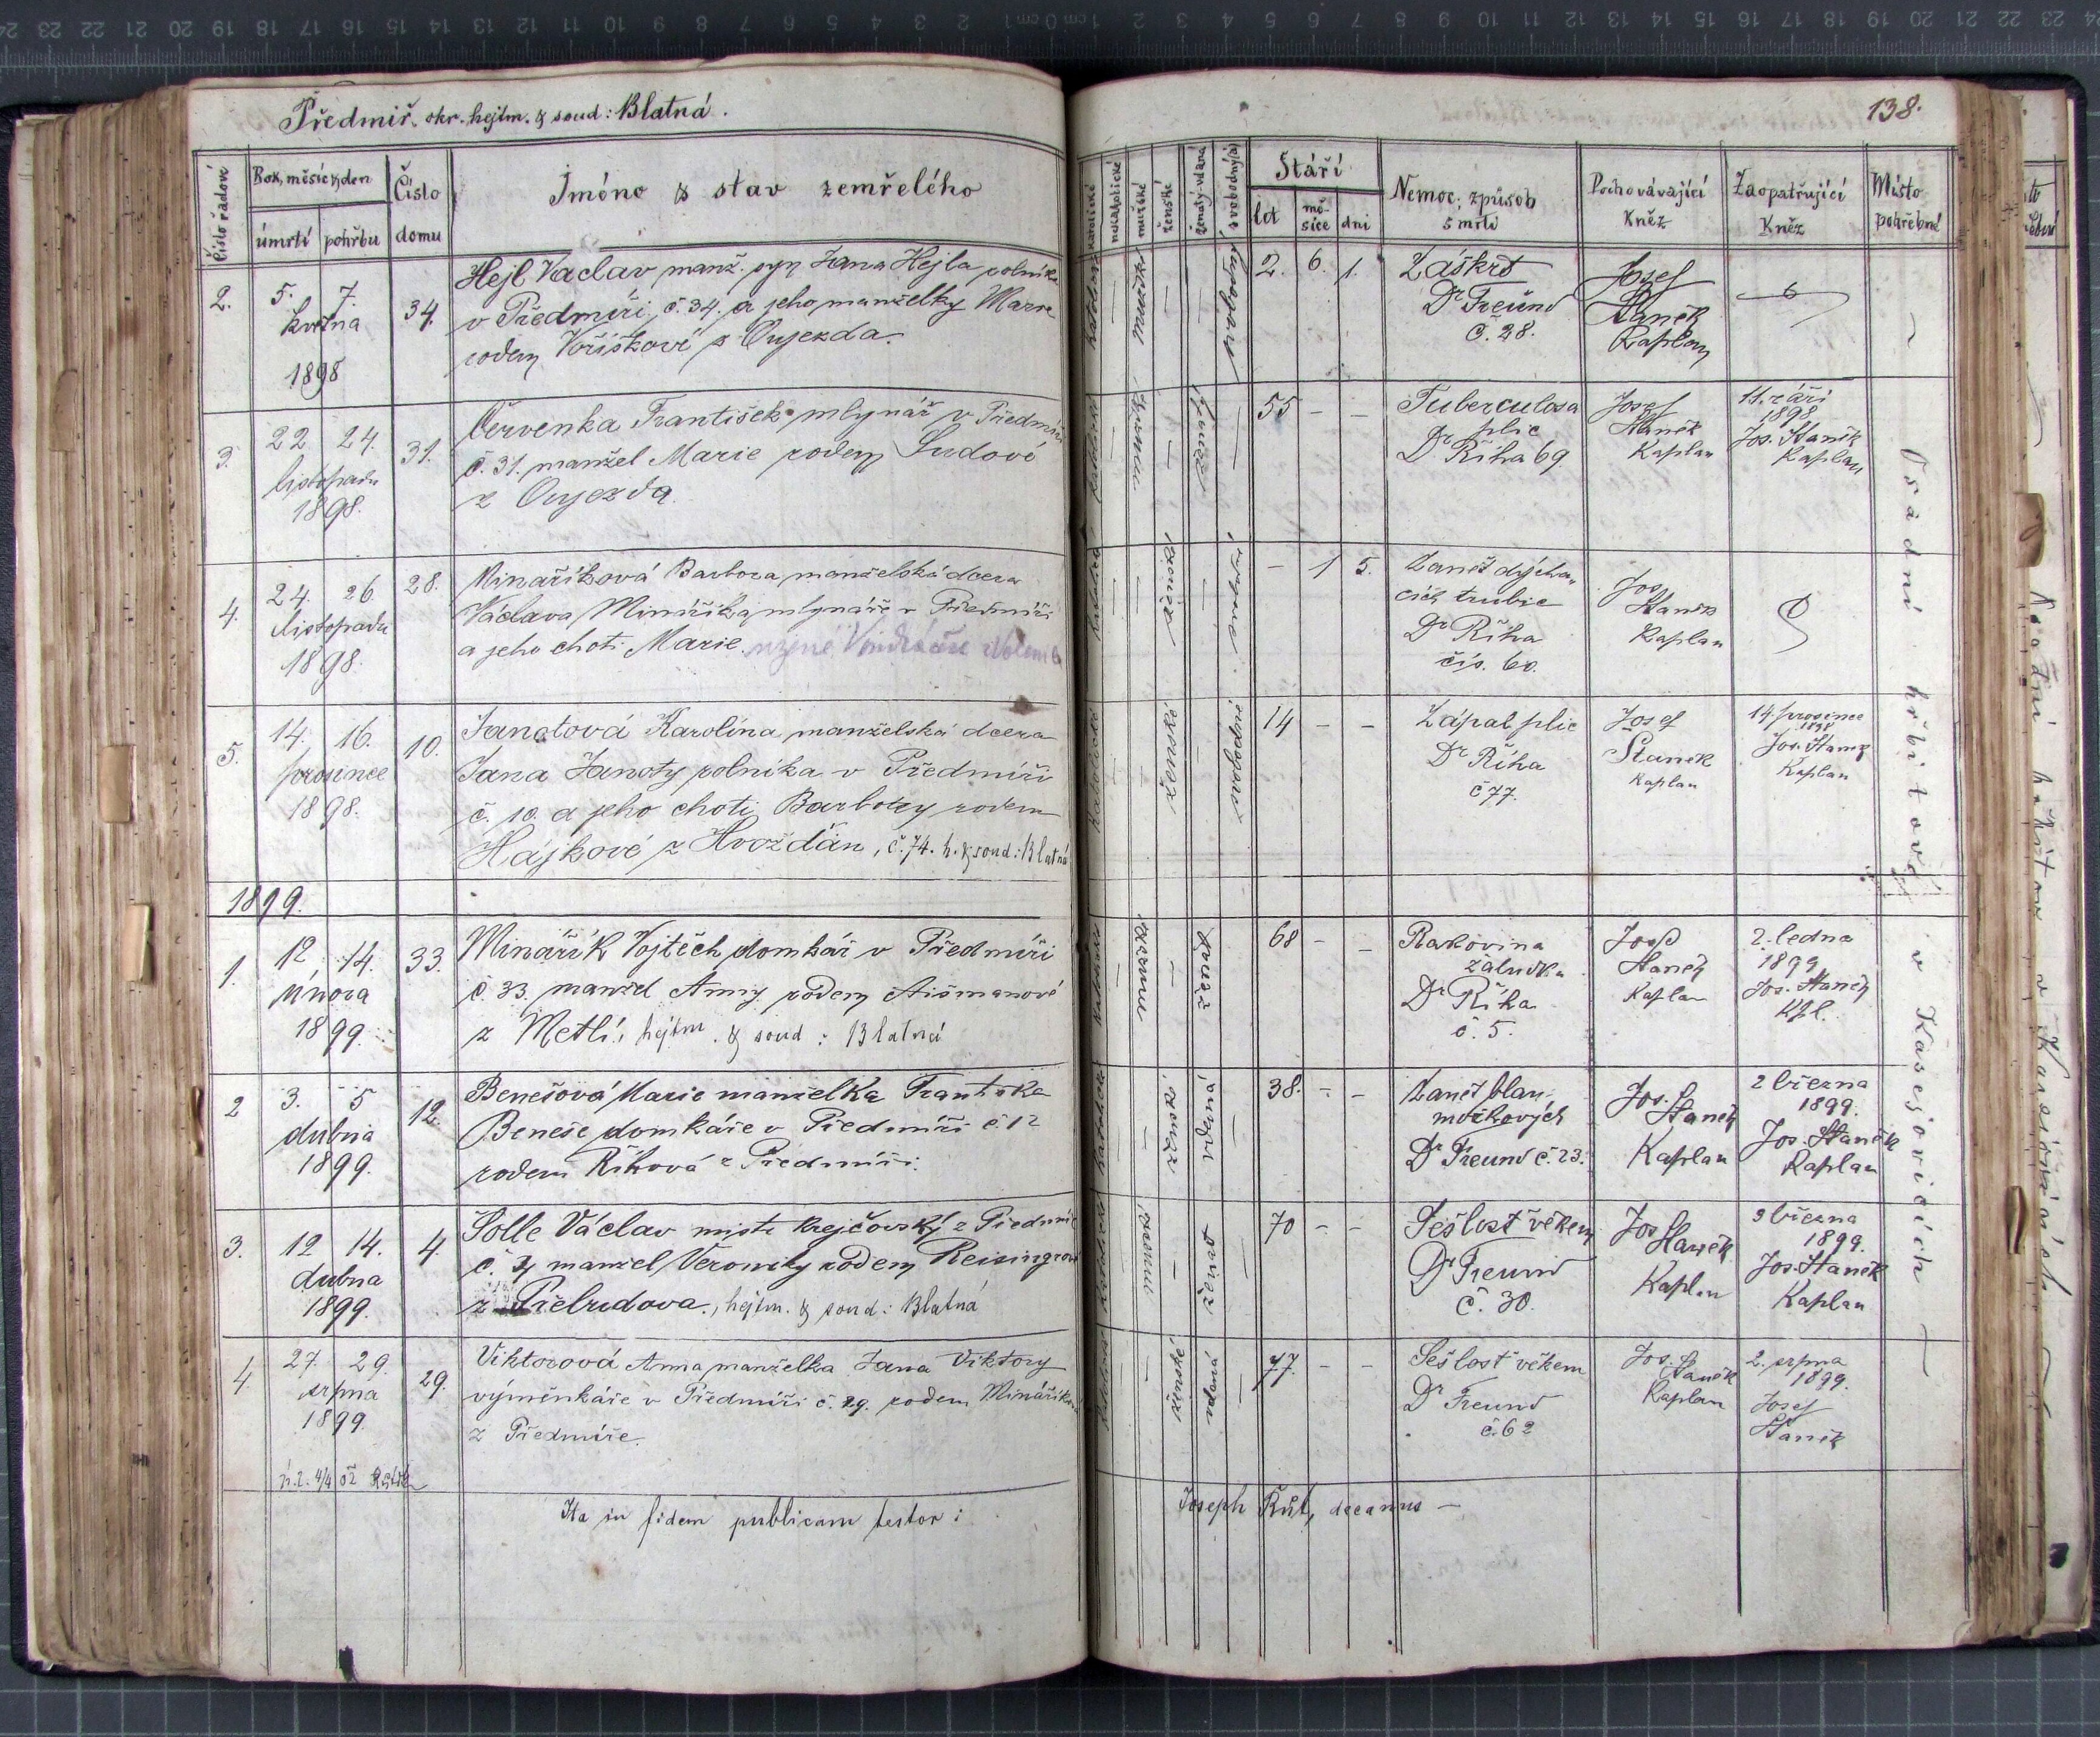 Předmíř. okr. hejtm. & soud: Blatná.
138.
Číslo řadové
Rok, měsíc & den
úmrtí pohřbu
Číslo domu
Jméno & stav zemřelého
katolické
nekatolické
mužské
ženské
ženatý-vdaná
svobodný(á)
Stáří
let měsíce dni
Nemoc, způsob smrti
Pochovávající Kněz
Zaopatřující Kněz
Místo pohřební
2. 5. 7. května 1898 34.
Hejl Václav manž. syn Jana Hejla polníka
v Předmíři č. 34. a jeho manželky Marie
rodem Voříškové z Oujezda.
2. 6. 1.
Záškrt
Dr Freund
č. 28.
Josef
Staněk
Kaplan
3. 22 24. listopadu 1898. 31.
Červenka František mlynář v Předmíři
č. 31. manžel Marie rodem Sudové
z Oujezda.
mužské ženatý
55 - -
Tuberculosa
plic
Dr Říha 69.
Josef
Staněk
Kaplan
11. září
1898
Jos. Staněk
Kaplan
4. 24. 26. listopadu 1898. 28.
Minaříková Barbora manželská dcera
Václava Minaříka mlynáře v Předmíři
a jeho choti Marie
ženské
- 1 5.
Zánět dýcha-
cích trubic
Dr Říha
čís. 60.
Jos.
Staněk
Kaplan
5. 14. 16. prosince 1898. 10.
Janotová Karolína manželská dcera
Jana Janoty polníka v Předmíři
č. 10. a jeho choti Barbory rodem
Hájkové z Hvožďan, č. 74. h. & soud: Blatná
ženské svobodné
14 - -
Zápal plic
Dr Říha
č 77.
Josef
Staněk
Kaplan
14. prosince
1898
Jos. Staněk
Kaplan
1899.
1. 12 14. února 1899. 33.
Minařík Vojtěch domkář v Předmíři
č. 33. manžel Anny rodem
z Metlí, hejtm. & soud: Blatná
mužské ženatý
68 - -
Rakovina
žaludku
Dr Říha
č. 5.
Josef
Staněk
Kaplan
2. ledna
1899
Jos. Staněk
Kpl.
2 3. 5 dubna 1899. 12.
Benešová Marie manželka Františka
Beneše domkáře v Předmíři č 12
rodem Říhová z Předmíři.
ženské vdaná
38. - -
Zánět blan
mozkových
Dr Freund č. 23.
Jos. Staněk
Kaplan
2 března
1899.
Jos. Staněk
Kaplan
3. 12 14. dubna 1899. 4.
Solle Václav mistr krejčovský z Předmíře
č. 4 manžel Veroniky rodem Reisingrové
z Přebudova., hejtm. & soud: Blatná
mužské ženat
70 - -
Sešlost věkem
Dr Freund
č. 30.
Jos Staněk
Kaplan
9 března
1899.
Jos. Staněk
Kaplan
4. 27. 29. srpna 1899. 29.
Viktorová Anna manželka Jana Viktory
výměnkáře v Předmíři č. 29. rodem Minaříková
z Předmíře.
ženské vdaná
77. - -
Sešlost věkem
Dr Freund
č. 62
Jos. Staněk
Kaplan
2. srpna
1899.
Josef
Staněk
Osadní hřbitově v Kasejovicích
Ita in fidem publicam testor: Joseph Růt, decanus